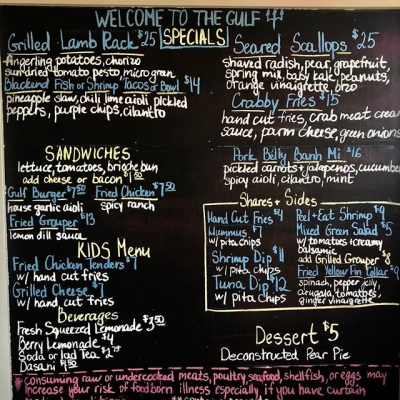 WELCOME TO THE GULF
SPECIALS
Grilled Lamb Rack $25
fingerling potatoes, chorizo
sundried tomato pesto, micro green
Blackend Fish or Shrimp Tacos or Bowl $14
pineapple slaw, chili lime aioli pickled
peppers, purple chips, cilantro
Seared Scallops $25
shaved radish, pear, grapefruit,
spring mix, baby kale, peanuts,
orange vinaigrette, orzo
Crabby Fries $15
hand cut fries, crab meat cream
sauce, parm cheese, green onions
Pork Belly Banh Mi $16
pickled carrots + jalapenos, cucumber
spicy aioli, cilantro, mint
SANDWICHES
lettuce, tomatoes, brioche bun
add cheese or bacon $1.50
Gulf Burger $7.50 Fried Chicken $7.50
house garlic aioli spicy ranch
Fried Grouper $13
lemon dill sauce
KIDS Menu
Fried Chicken Tenders $7
w/ hand cut fries
Grilled Cheese $7
w/ hand cut fries
Beverages
Fresh Squeezed Lemonade $3.50
Berry Lemonade $4
Soda or Iced Tea $2.75
Dasani
Shares + Sides
Hand Cut Fries $4
Hummus $7
w/ pita chips
Shrimp Dip $11
w/ pita chips
Tuna Dip $12
w/ pita chips
Peel + Eat Shrimp $9
Mixed Green Salad $5
w/ tomatoes + creamy
balsamic
add Grilled Grouper $8
Fried Yellow Fin Collar $9
spinach, pepper jelly,
arugula, tomatoes,
ginger vinaigrette
Dessert $5
Deconstructed Pear Pie
* consuming raw or undercooked meats, poultry, seafood, shellfish, or eggs may
increase your risk of foodborn illness especially if you have certain